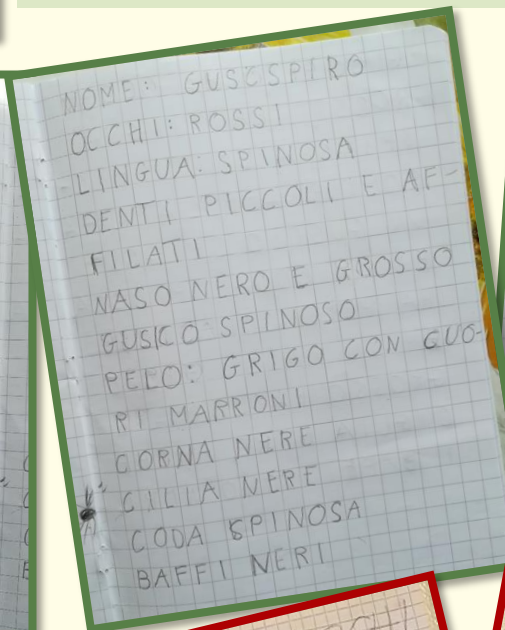 NOME: GUSCSPIRO
OCCHI: ROSSI
LINGUA: SPINOSA
DENTI PICCOLI E AF-
FILATI
NASO NERO E GROSSO
GUSICO SPINOSO
PELO: GRIGO CON CUO-
RI MARRONI
CORNA NERE
CILIA NERE
CODA SPINOSA
BAFFI NERI